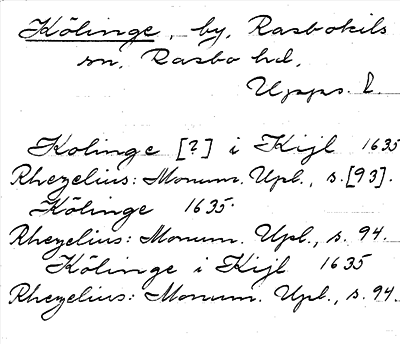 Kölinge, by, Rasbokils
sn, Rasbo hd,
Upps. l.
Kolinge [?] i Kijl 1635
Rhezelius: Monum. Upl., s. [93].
Kölinge 1635.
Rhezelius: Monum. Upl., s. 94.
Kölinge i Kijl 1635
Rhezelius: Monum. Upl., s. 94.